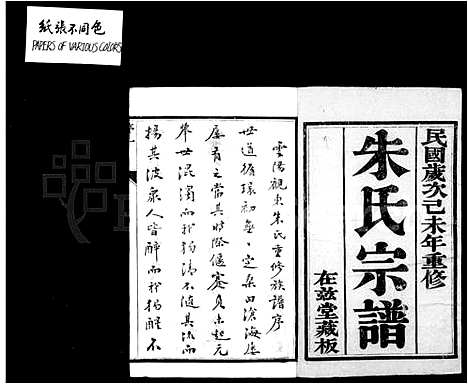 紙張不同色
PAPERS OF VARIOUS COLORS
民國歲次己未年重修
朱氏宗譜
在茲堂藏板
雲陽觀東朱氏重修族譜序
世道循環初無一定桑田滄海屢
屢有之當其時際偃蹇貞未起元
舉世混濁而我獨清不隨其流而
揚其波眾人皆醉而我獨醒不